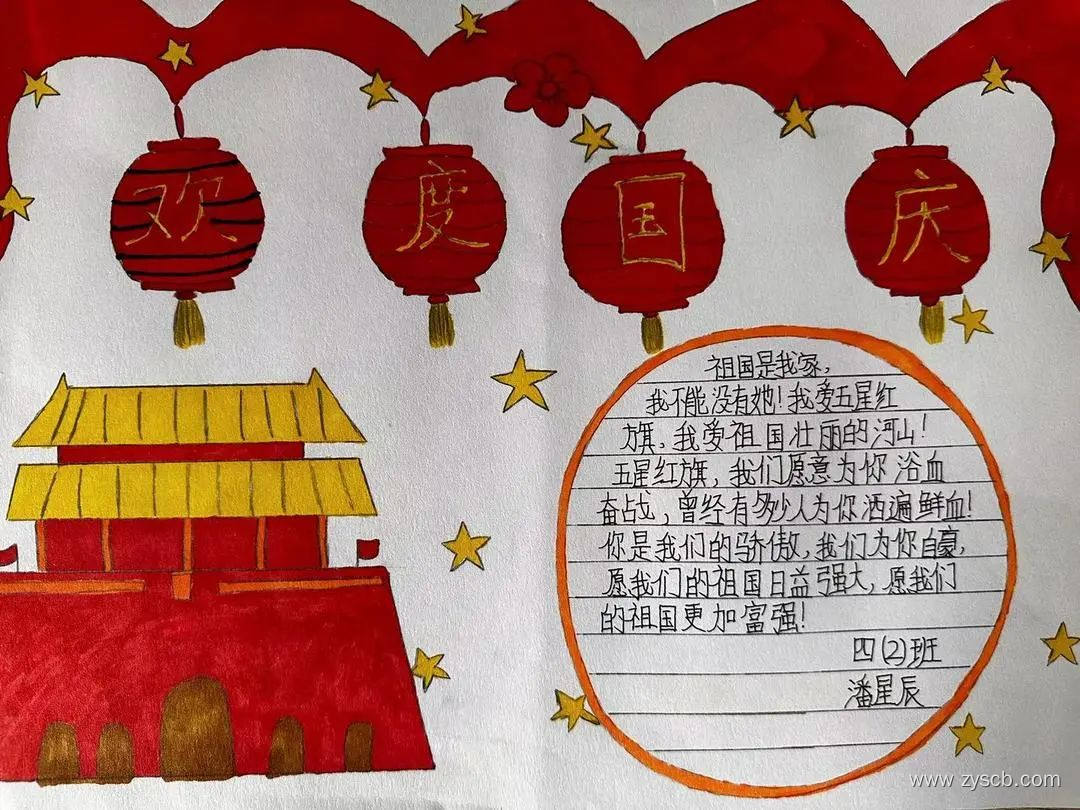 欢度国庆
祖国是我家,
我不能没有她!我爱五星红
旗,我爱祖国壮丽的河山!
五星红旗,我们愿意为你浴血
奋战,曾经有多少人为你洒遍鲜血!
你是我们的骄傲,我们为你自豪,
愿我们的祖国日益强大,愿我们
的祖国更加富强!
四(2)班
潘星辰
www.zyscb.com